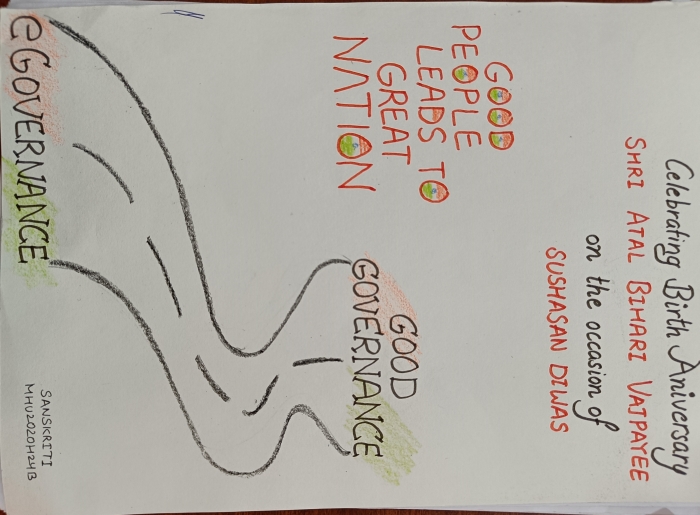 Celebrating Birth Aniversary
SHRI ATAL BIHARI VAJPAYEE
on the occasion of
SUSHASAN DIWAS
GOOD
PEOPLE
LEADS TO
GREAT
NATION
GOOD
GOVERNANCE
eGOVERNANCE
SANSKRITI
MHU2020H24B